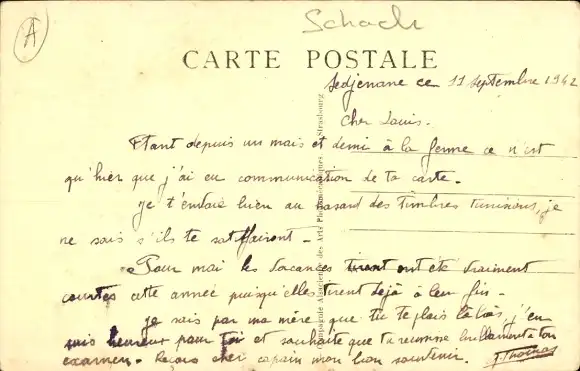 A
Schach
CARTE POSTALE
Sedjenane ce 11 septembre 1942
Cher Louis.
Étant depuis un mois et demi à la ferme ce n'est
qu'hier que j'ai eu communication de ta carte.
je t'envoie bien au hasard des timbres tunisiens, je
ne sais s'ils te satisfairont.
Pour moi les vacances ont été vraiment
courtes cette année puisqu'elles tirent déjà à leur fin.
je sais par ma mère que tu te plais là-bas, j'en
suis heureux pour toi et souhaite que tu réussisse brillament à ton
examen. Reçois cher copain mon bon souvenir. J. Thomas
Compagnie Alsacienne des Arts Photomécaniques, Strasbourg